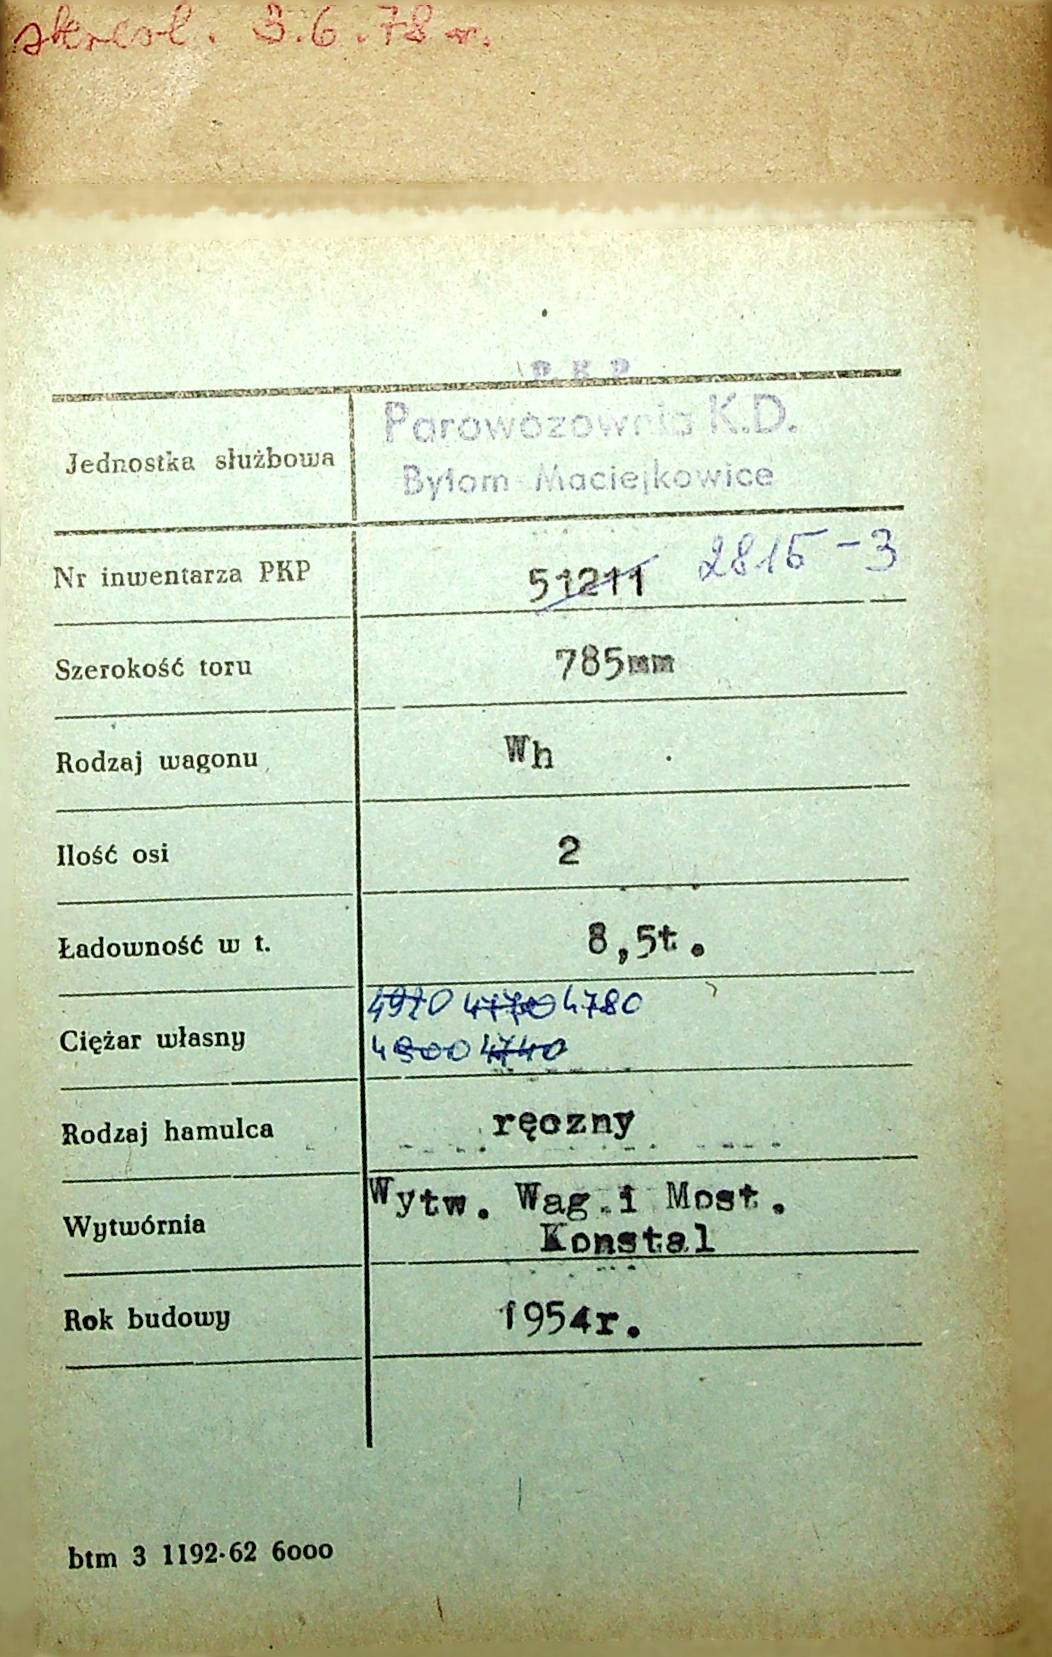 skreśl. 3.6.78 r.
P.K.P.
Jednostka służbowa Parowozownia K.D.
Bytom Maciejkowice
Nr inwentarza PKP 51211 2815-3
Szerokość toru 785mm
Rodzaj wagonu Wh
Ilość osi 2
Ładowność w t. 8,5t.
Ciężar własny 4920 4770 4780
4800 4740
Rodzaj hamulca ręczny
Wytwórnia Wytw. Wag.i Most.
Konstal
Rok budowy 1954r.
btm 3 1192-62 6000